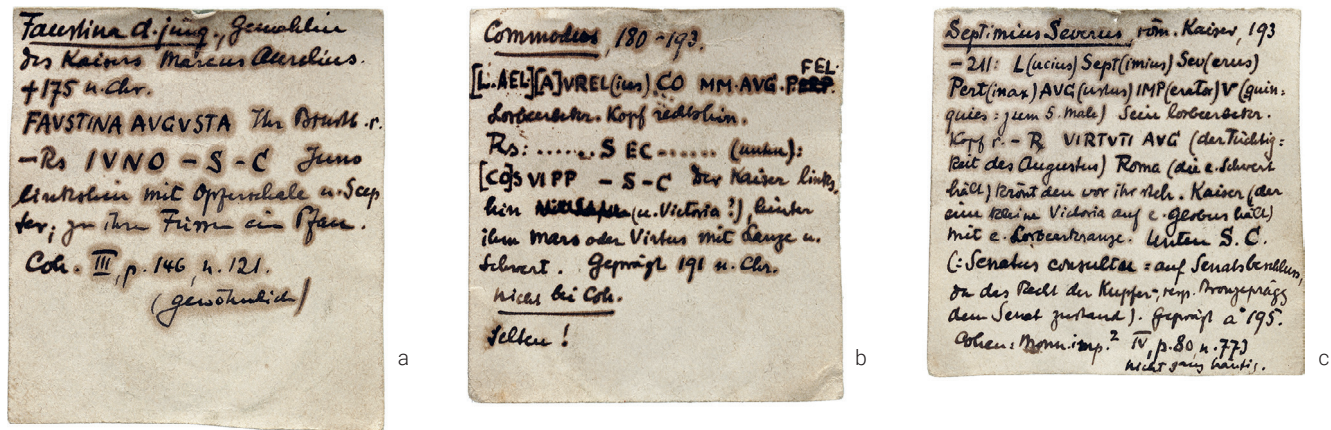 Faustina d. jüng., Gemahlin
des Kaisers Marcus Aurelius.
+175 n. Chr.
FAVSTINA AVGVSTA Ihr Brustb. r.
– Rs IVNO – S – C Juno
linkshin mit Opferschale u. Scep
ter; zu ihren Füssen ein Pfau.
Coh. III, p. 146, n. 121.
(gewöhnlich)
a
Commodus, 180–193.
FEL.
[L. AEL][A]VREL(ius) CO MM. AVG. P.
Lorbeerbekr. Kopf rechtshin.
Rs: ....... S EC ...... (unten):
[CO]S VI PP – S – C Der Kaiser links
hin (u. Victoria?), hinter
ihm Mars oder Virtus mit Lanze u.
Schwert. Geprägt 191 n. Chr.
Nicht bei Coh.
Selten!
b
Septimius Severus, röm. Kaiser, 193
– 211: L(ucius) Sept(imius) Sev(erus)
Pert(inax) AVG(ustus) IMP(erator) V (quin-
quies: zum 5. Male) Sein lorbeerbekr.
Kopf r. – R VIRTVTI AVG (der Tüchtig=
keit des Augustus) Roma (die e. Schwert
hält) krönt den vor ihr steh. Kaiser (der
eine kleine Victoria auf e. Globus hält)
mit e. Lorbeerkranze. Unten S. C.
(: Senatus consulto = auf Senatsbeschluss,
da das Recht der Kupfer-, resp. Bronzeprägg
dem Senat zustand). Geprägt a° 195.
Cohen: Monn. imp.² IV, p. 80, n. 773
nicht ganz häufig.
c